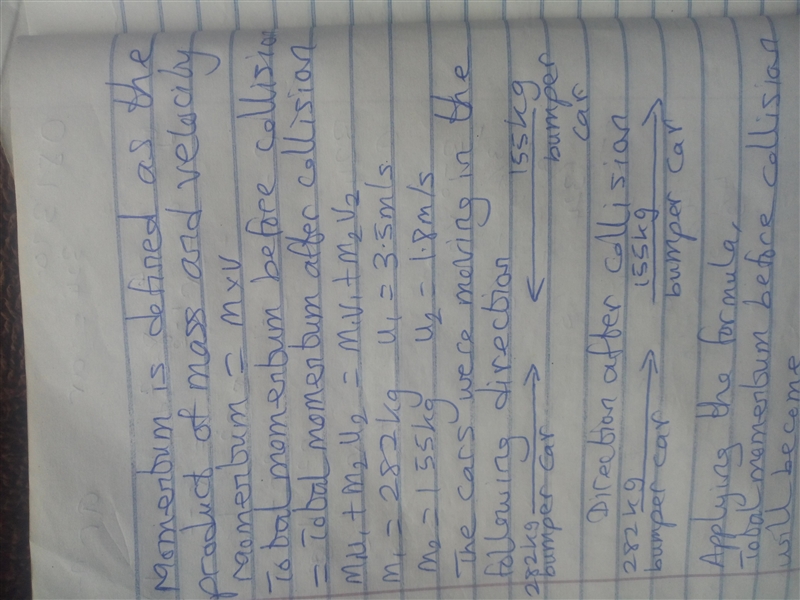 Momentum is defined as the
product of mass and velocity
Momentum = m×v
Total momentum before collision
= Total momentum after collision
M1U1 + M2U2 = M1V1 + M2V2
m1 = 282kg u1 = 3.5m/s
m2 = 155kg u2 = 1.8m/s
The cars were moving in the
following direction
282kg 155kg
bumper car bumper
car
Direction after collision
282kg 155kg
bumper car bumper car
Applying the formula,
Total momentum before collision
will become